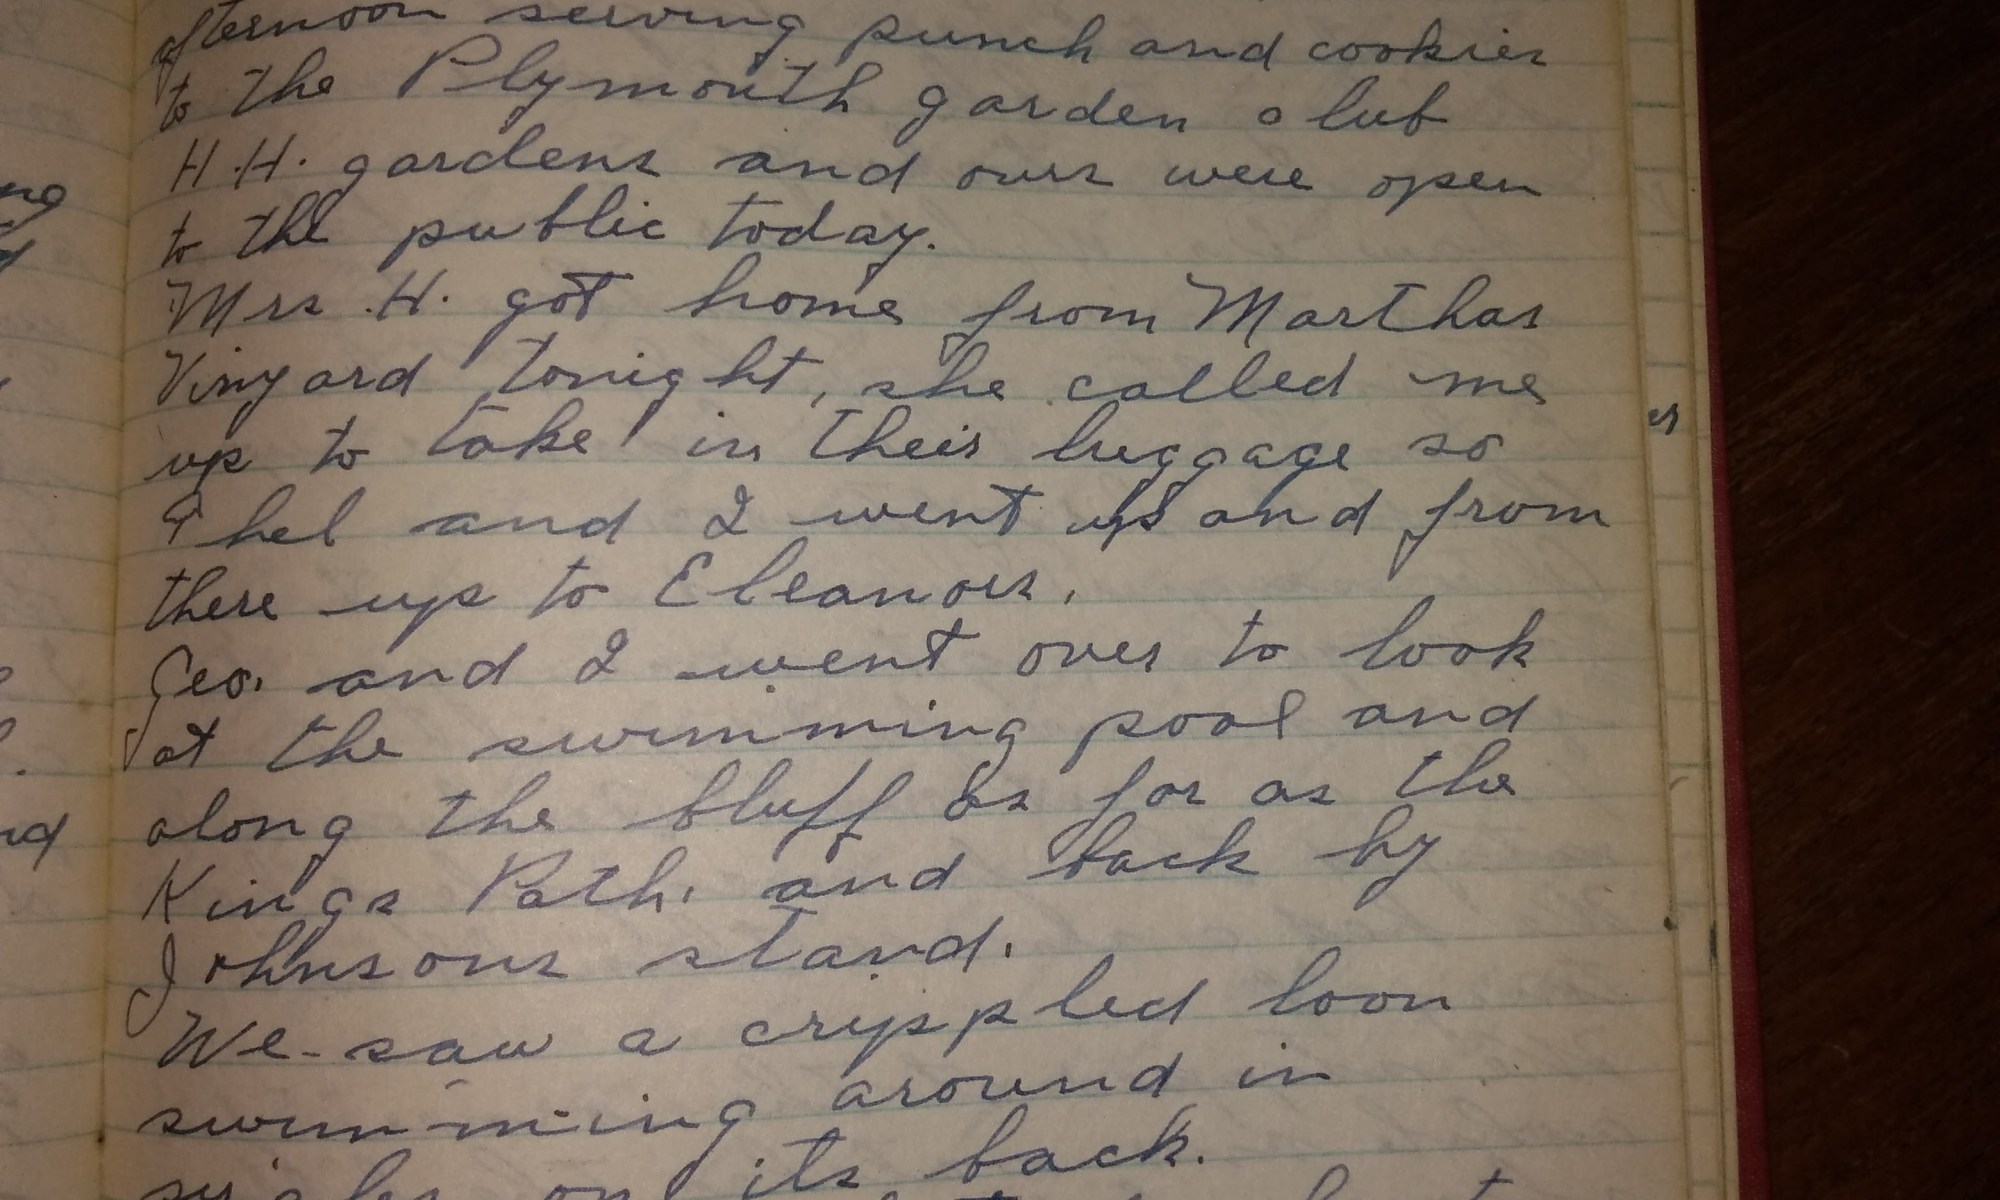 afternoon serving punch and cookies
to the Plymouth garden club
H.H. gardens and ours were open
to the public today.
Mrs. H. got home from Marthas
Vinyard tonight, she called me
up to take in their luggage so
Thel and I went up and from
there up to Eleanors.
Geo. and I went over to look
at the swimming pool and
along the bluff as far as the
Kings Path. and back by
Johnsons stand.
We saw a crippled loon
swimming around in
on its back.